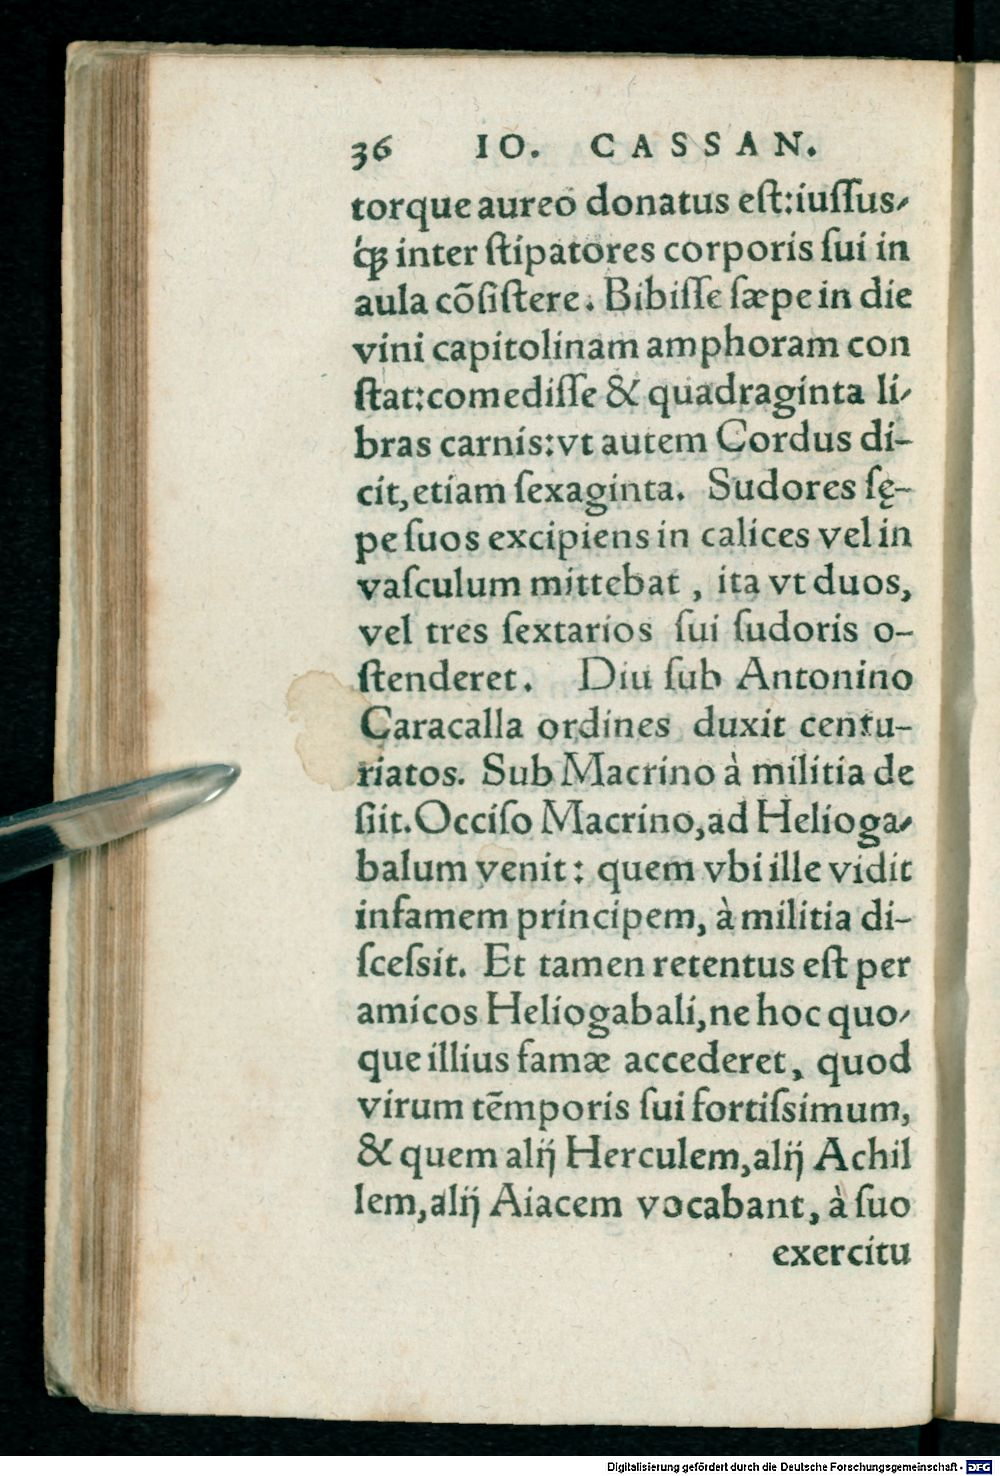 36 IO. CASSAN.
torque aureo donatus eſt:iuſſus-
q́ꝫ inter ſtipatores corporis ſui in
aula cōſiſtere. Bibiſſe ſæpe in die
vini capitolinam amphoram con
ſtat:comediſſe & quadraginta li-
bras carnis:vt autem Cordus di-
cit,etiam ſexaginta. Sudores ſę-
pe ſuos excipiens in calices vel in
vaſculum mittebat , ita vt duos,
vel tres ſextarios ſui ſudoris o-
ſtenderet. Diu ſub Antonino
Caracalla ordines duxit centu-
riatos. Sub Macrino à militia de
ſiit. Occiſo Macrino,ad Helioga-
balum venit: quem vbi ille vidit
infamem principem, à militia di-
ſceſsit. Et tamen retentus eſt per
amicos Heliogabali,ne hoc quo-
que illius famæ accederet, quod
virum tēmporis ſui fortiſsimum,
& quem alij Herculem,alij Achil
lem,alij Aiacem vocabant, à ſuo
exercitu
Digitalisierung gefördert durch die Deutsche Forschungsgemeinschaft - DFG